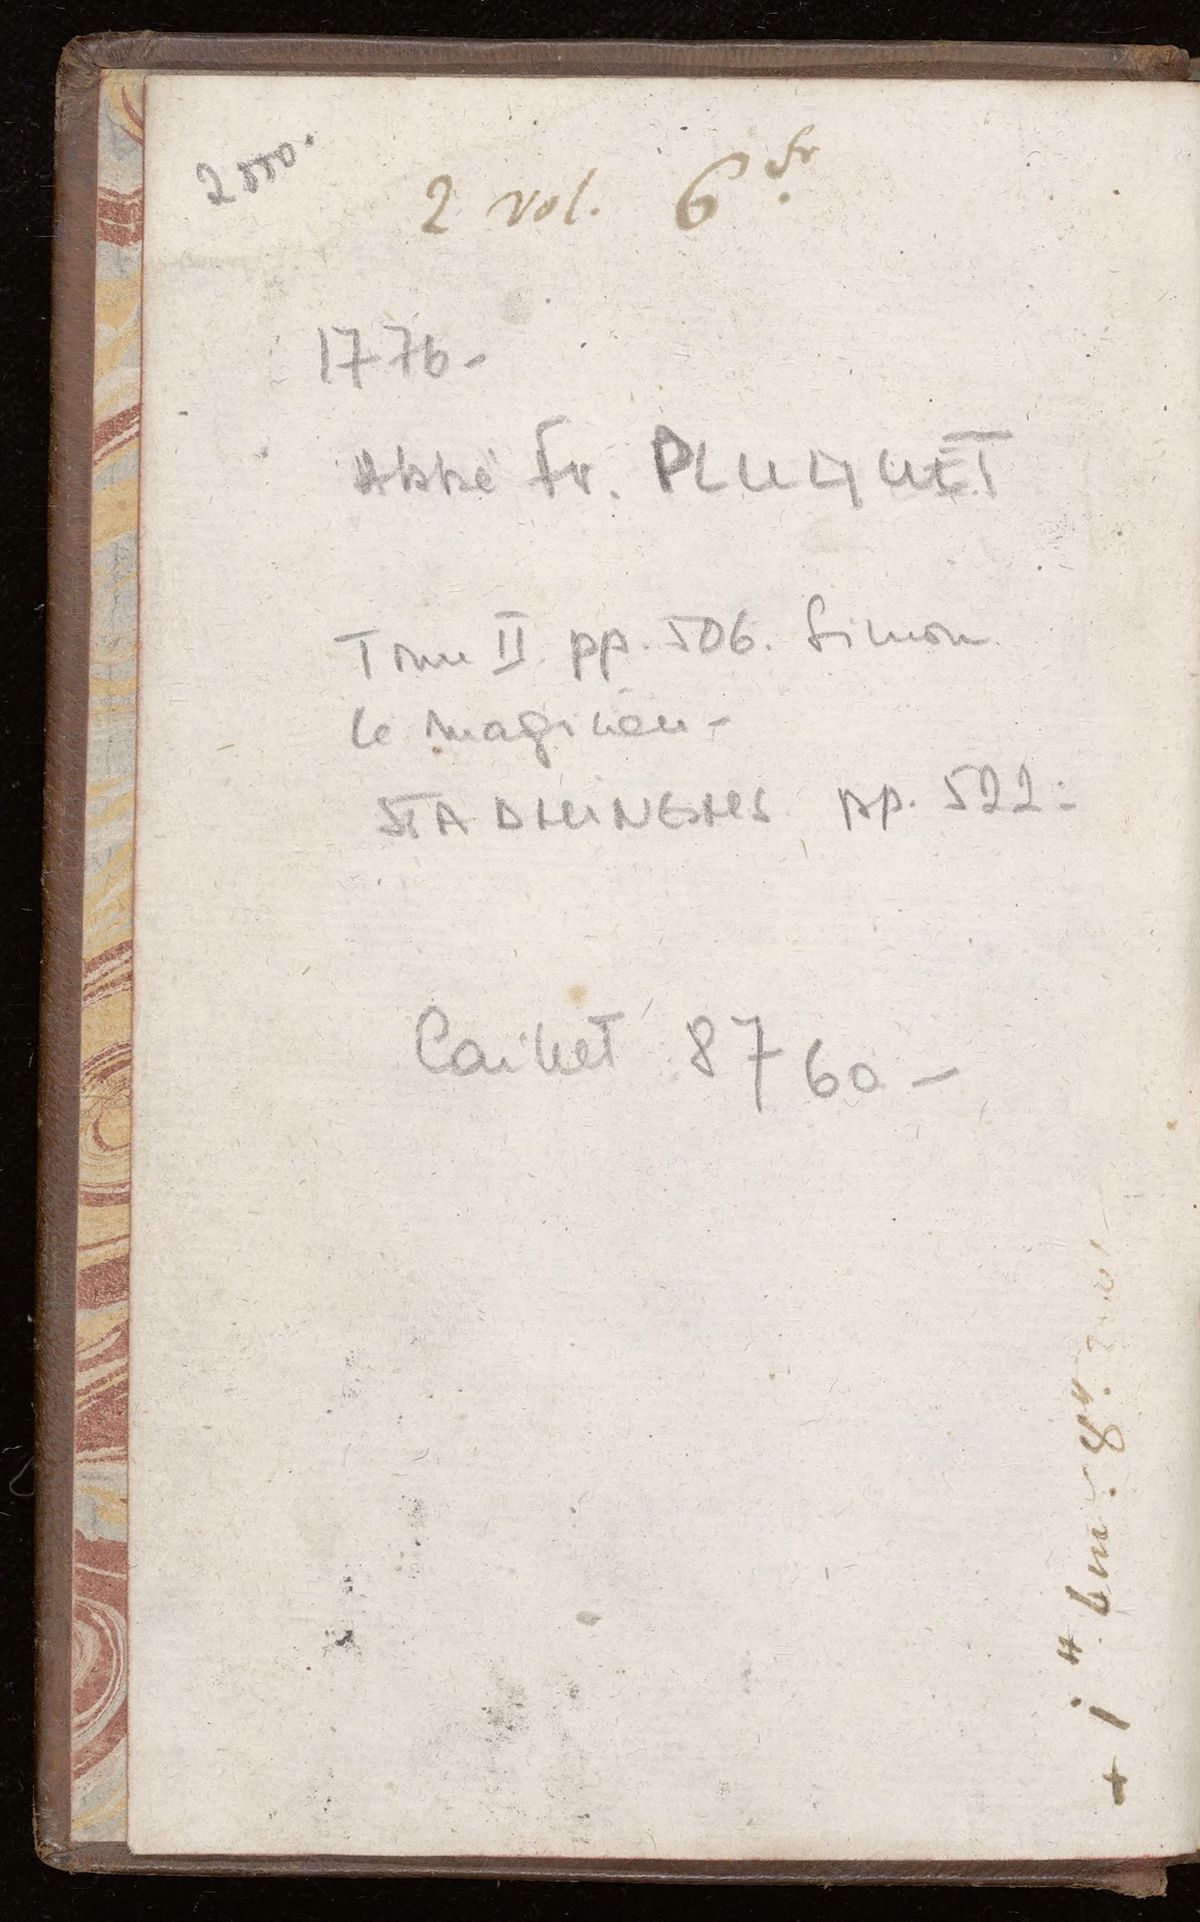 2000.
2 vol. 6 fr.
1776-
Abbé Fr. PLUQUET
Tome II pp. 506. Simon
le Magicien-
STADHINGHS pp. 522-
Caillet 8760-
+ i "